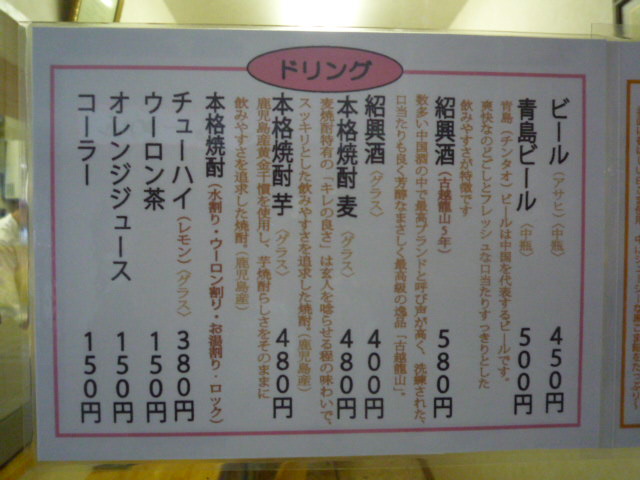 ドリング
ビール（アサヒ）〈中瓶〉 450円
青島ビール 〈中瓶〉 500円
青島（チンタオ）ビールは中国を代表するビールです。
爽快なのどごしとフレッシュな口当たりすっきりとした
飲みやすさが特徴です
紹興酒（古越龍山5年） 580円
数多い中国酒の中で最高ブランドと呼び声が高く、洗練された、
口当たりも良く芳醇なまさしく最高級の逸品「古越龍山」。
紹興酒〈グラス〉 400円
本格焼酎 麦〈グラス〉 480円
麦焼酎特有の「キレの良さ」は玄人を唸らせる程の味わいで、
スッキリとした飲みやすさを追求した焼酎。（鹿児島産）
本格焼酎 芋〈グラス〉 480円
鹿児島産黄金千慣を使用し、芋焼酎らしさをそのままに
飲みやすさを追求した焼酎（鹿児島産）
本格焼酎（水割り・ウーロン割り・お湯割り・ロック）
チューハイ（レモン）〈グラス〉 380円
ウーロン茶 150円
オレンジジュース 150円
コーラー 150円